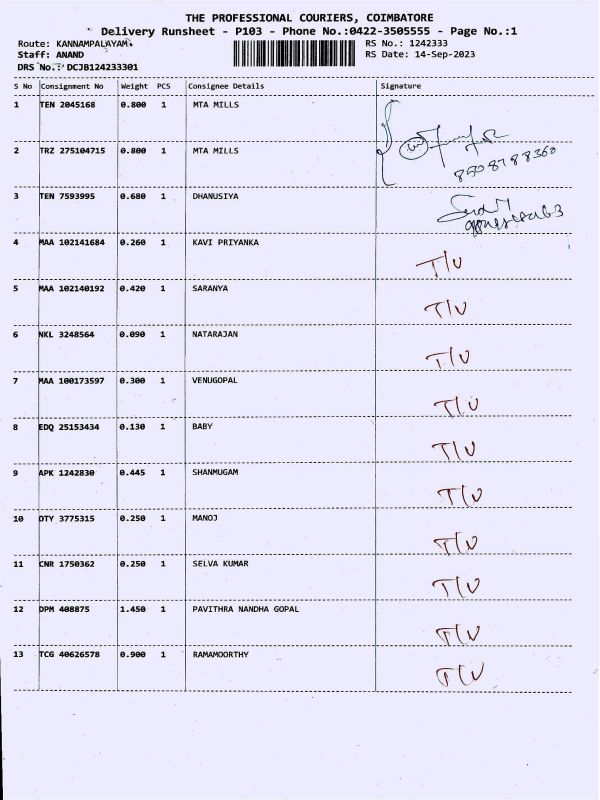 THE PROFESSIONAL COURIERS, COIMBATORE
Delivery Runsheet - P103 - Phone No.:0422-3505555 - Page No.:1
Route: KANNAMPALAYAM.
RS No.: 1242333
Staff: ANAND
RS Date: 14-Sep-2023
DRS No.: DCJB124233301
S No Consignment No Weight PCS Consignee Details Signature
1 TEN 2045168 0.800 1 MTA MILLS
2 TRZ 275104715 0.800 1 MTA MILLS
8508788360
3 TEN 7593995 0.680 1 DHANUSIYA
4 MAA 102141684 0.260 1 KAVI PRIYANKA T/U
5 MAA 102140192 0.420 1 SARANYA T/U
6 NKL 3248564 0.090 1 NATARAJAN T/U
7 MAA 100173597 0.300 1 VENUGOPAL T/U
8 EDQ 25153434 0.130 1 BABY T/U
9 APK 1242830 0.445 1 SHANMUGAM T/U
10 DTY 3775315 0.250 1 MANOJ T/U
11 CNR 1750362 0.250 1 SELVA KUMAR T/U
12 DPM 408875 1.450 1 PAVITHRA NANDHA GOPAL T/U
13 TCG 40626578 0.900 1 RAMAMOORTHY T/U